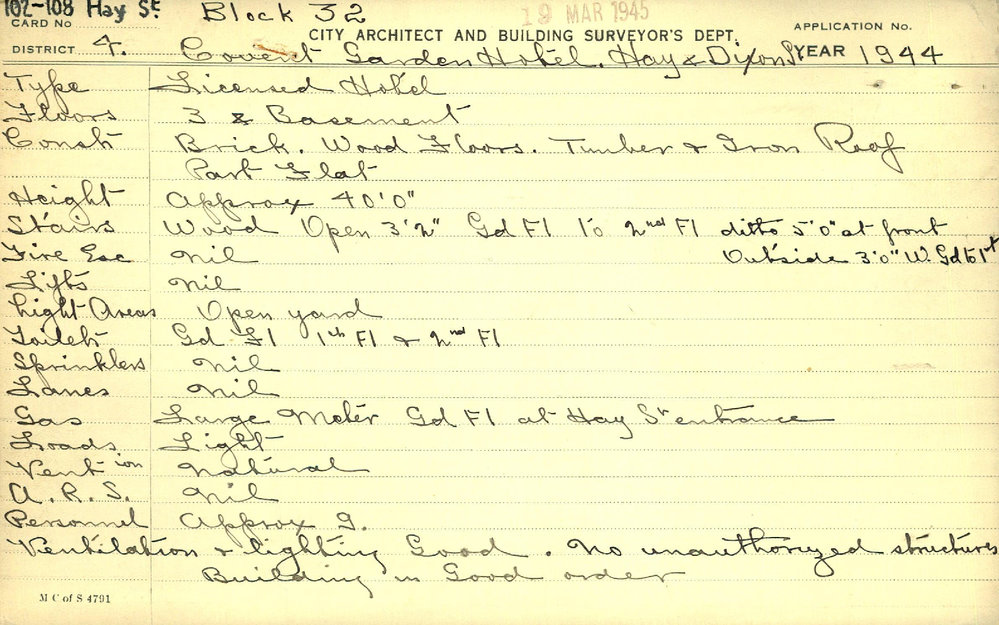 102-108 Hay St. Block 32 19 MAR 1945
CARD No
CITY ARCHITECT AND BUILDING SURVEYOR'S DEPT. APPLICATION No.
DISTRICT 4. Covent Garden Hotel. Hay & Dixon St YEAR 1944
Type Licensed Hotel
Floors 3 & Basement
Constr Brick. Wood Floors. Timber & Iron Roof
Part Flat
Height Approx 40'0"
Stairs Wood Open 3'2" Gd Fl to 2nd Fl ditto 5'0" at front
Fire Esc Nil Outside 3'0" W. Gd to 1st
Lifts Nil
Light Areas Open yard
Toilets Gd Fl 1st Fl & 2nd Fl
Sprinklers Nil
Lanes Nil
Gas Large Meter Gd Fl at Hay St entrance
Loads Light
Vention Natural
A.R.S. Nil
Personnel Approx 9.
Ventilation & lighting Good. No unauthorized structures
Building in Good order
M C of S 4791